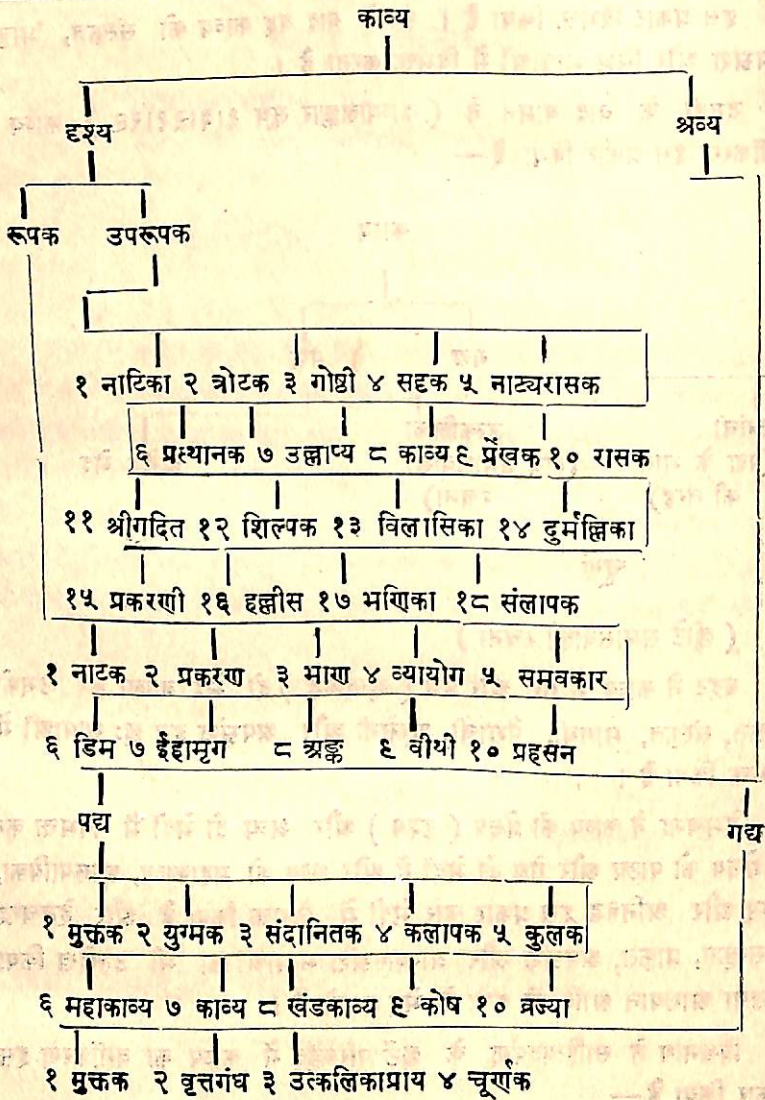 काव्य
दृश्य श्रव्य
रूपक उपरूपक
१ नाटिका २ त्रोटक ३ गोष्ठी ४ सट्टक ५ नाट्यरासक
६ प्रस्थानक ७ उल्लाप्य ८ काव्य ९ प्रेंखक १० रासक
११ श्रीगदित १२ शिल्पक १३ विलासिका १४ दुर्मल्लिका
१५ प्रकरणी १६ हल्लीस १७ भणिका १८ संलापक
१ नाटक २ प्रकरण ३ भाण ४ व्यायोग ५ समवकार
६ डिम ७ ईहामृग ८ अङ्क ९ वीथी १० प्रहसन
पद्य गद्य
१ मुक्तक २ युग्मक ३ संदानितक ४ कलापक ५ कुलक
६ महाकाव्य ७ काव्य ८ खंडकाव्य ९ कोष १० व्रज्या
१ मुक्तक २ वृत्तगंध ३ उत्कलिकाप्राय ४ चूर्णक